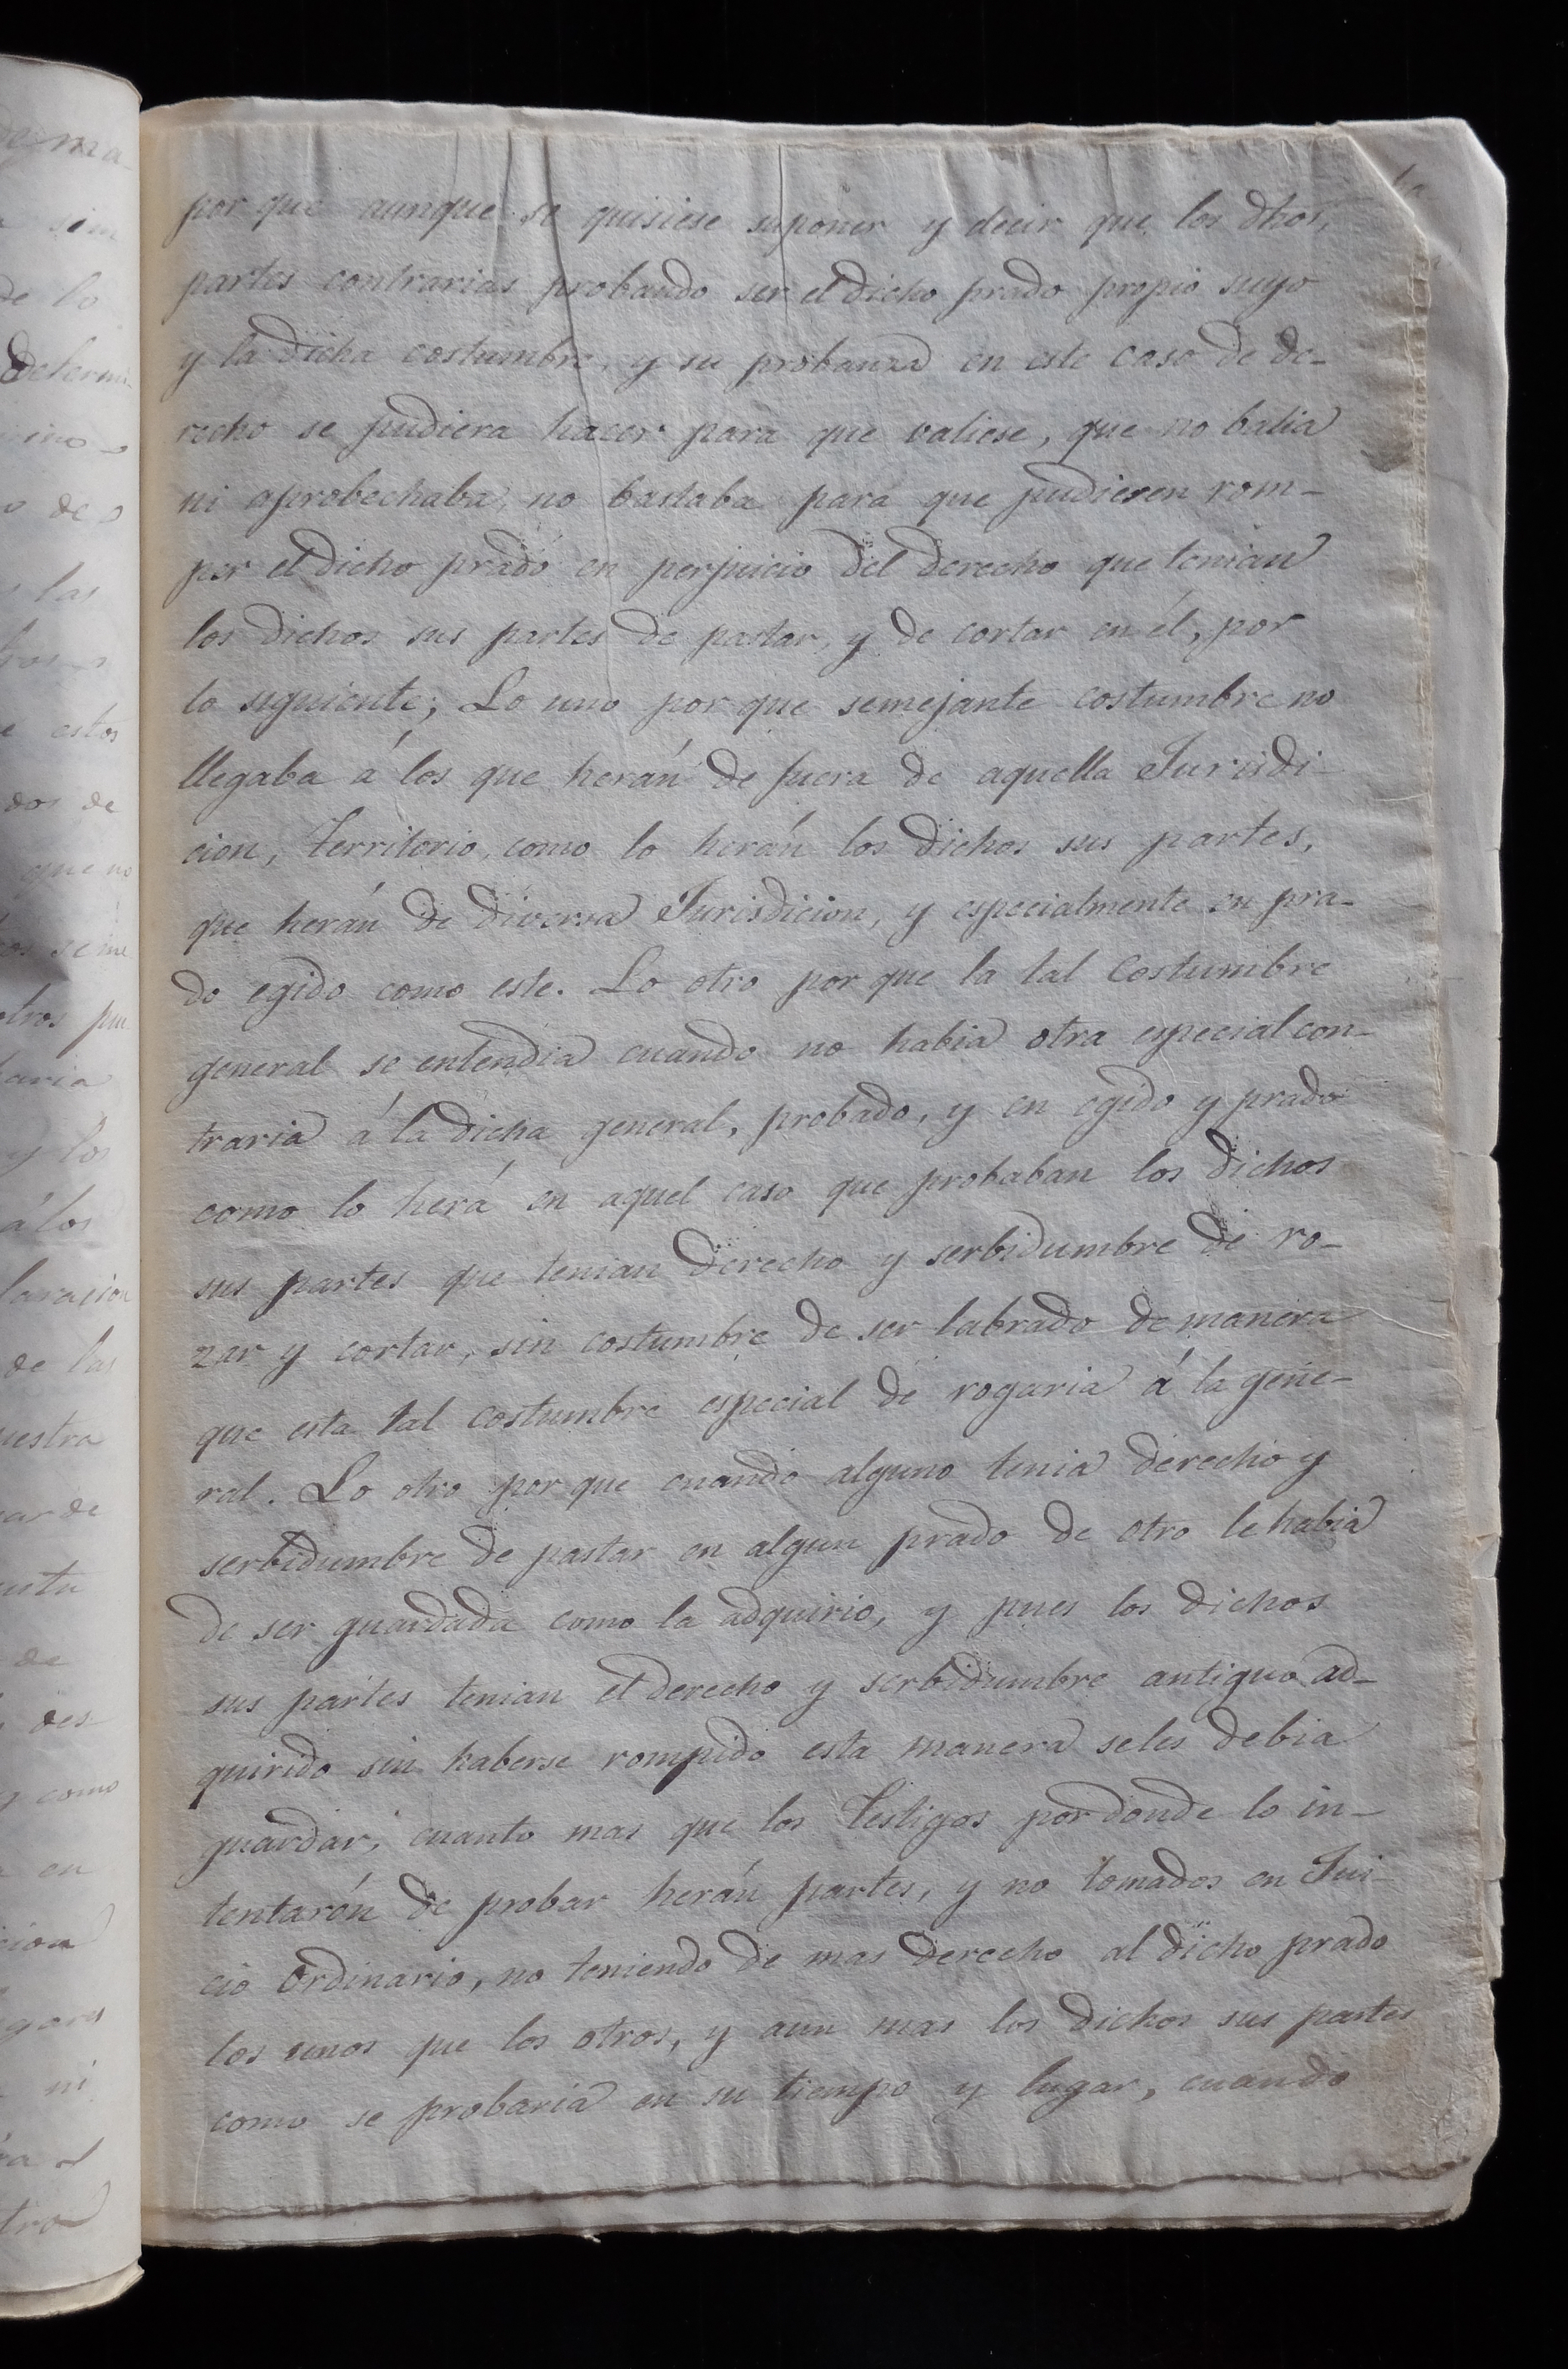 por que aunque se quisiese suponer y decir que los dhos,
partes contrarias probando ser el dicho prado propio suyo
y la dicha costumbre, y su probanza en este caso de de-
recho se pudiera hacer para que valiese, que no balia
ni aprobechaba, no bastaba para que pudiesen rom-
per el dicho prado en perjuicio del derecho que tenian
los dichos sus partes de pastar, y de cortar en él, por
lo siguiente; Lo uno por que semejante costumbre no
llegaba á los que herán de fuera de aquella Jurisdi-
cion, territorio, como lo herán los dichos sus partes,
que herán de diversa Jurisdicion, y especialmente en pra-
do egido como este. Lo otro por que la tal Costumbre
general se entendia cuando no habia otra especial con-
traria á la dicha general, probado, y en egido y prado
como lo herá en aquel caso que probaban los dichos
sus partes que tenian derecho y serbidumbre de ro-
zar y cortar, sin costumbre de ser labrado de manera
que esta tal costumbre especial de rogaria á la gene-
ral. Lo otro por que cuando alguno tenia derecho y
serbidumbre de pastar en algun prado de otro le habia
de ser guardada como la adquirio, y pues los dichos
sus partes tenian el derecho y serbidumbre antiguo ad-
quirido sin haberse rompido esta manera seles debia
guardar, cuanto mas que los testigos por donde lo in-
tentarón de probar herán partes, y no tomados en Jui-
cio ordinario, no teniendo de mas derecho al dicho prado
los unos que los otros, y aun mas los dichos sus partes
como se probaria en su tiempo y lugar, cuando